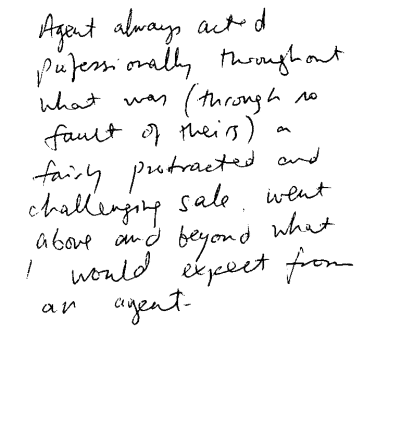 Agent always acted
professionally throughout
what was (through no
fault of theirs) a
fairly protracted and
challenging sale. went
above and beyond what
I would expect from
an agent.